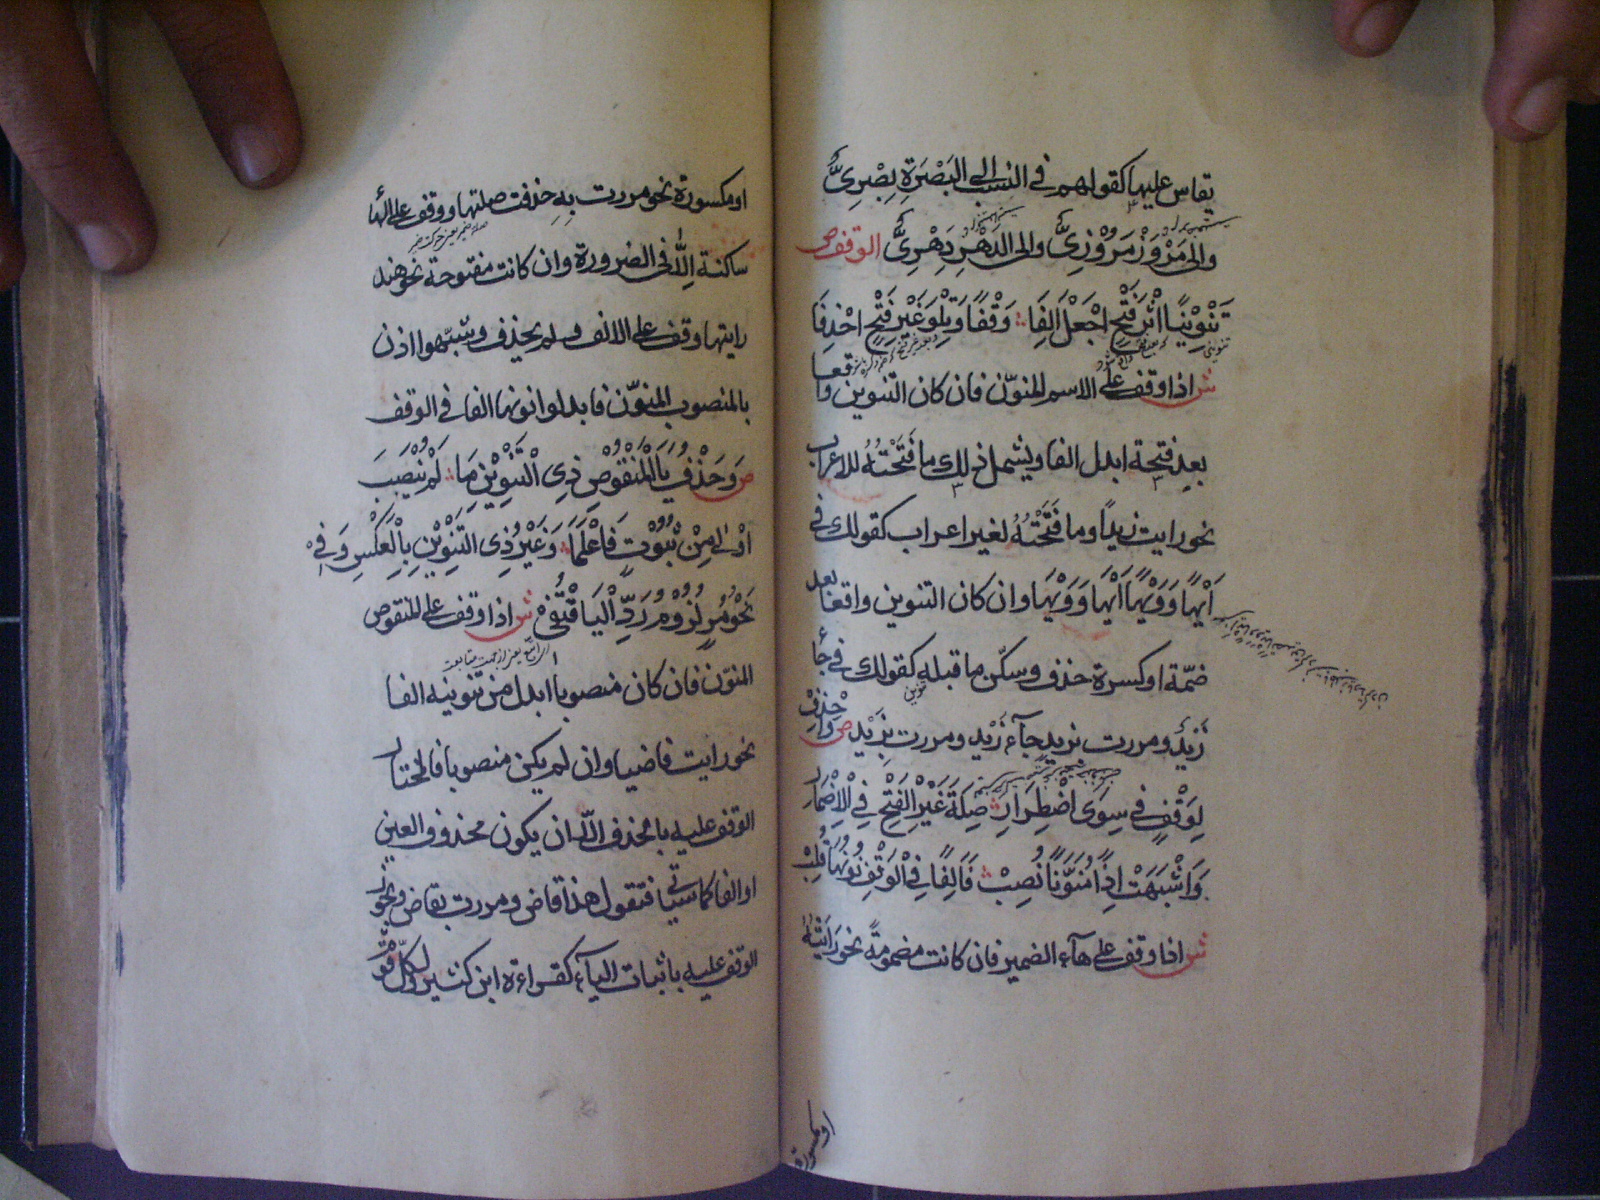 يقاس عليها كقولهم في النسب الى البَصْرَةِ بِصْرِىٌّ
والى مَرْوَزْ مَرْوَزِىٌّ والى الدَهْرِ دَهْرِىٌّ الوقف ص
تَنْوِيْنًا اثْرَ فَتْحٍ اجْعَلْ اَلِفَا وَقْفًا وَتِلْوَ غَيْرِ فَتْحٍ احْذِفَا
ش اذا وقف على الاسم المنوّن فان كان التنوين واقعا
بعد فتحة ابدل الفا ويشمل ذلك ما فَتْحَتُهُ للاعراب
نحو رايت زيدًا وما فَتْحَتُهُ لغير اعراب كقولك في
اَيْهًا وَوَيْهًا اَيْهَا وَوَيْهَا وان كان التنوين واقعا بعد
ضمّة او كسرة حذف وسكّن ما قبله كقولك في جاء
زَيدٌ ومررت بزيدٍ جآء زَيْد ومررت بِزَيْد ص وَاحْذِفْ
لِوَقْفٍ في سِوَى اضْطِرَارِ صِلَةَ غَيْرِ الفَتْحِ فِي الْاِضْمَارِ
وَاشْبَهَتْ اِذًا مُنَوَّنًا نُصِبْ فَاَلِفًا فِي الْوَقْفِ نُوْنُهَا قُلِبْ
ش اذا وقف على هآء الضمير فان كانت مضمومةً نحو رَايْتُهُ
او مكسورة
او مكسورة نحو مررت بِهِ حذفت صلتها ووقف على الهاء
ساكنة اِلّا في الضرورة وان كانت مفتوحة نحو هند
رايتها وقف على الالف ولم يحذف وشبّهوا اذن
بالمنصوب المنوّن فابدلوا نونها الفا في الوقف
ص وَحَذْفُ يَا الْمَنْقُوْصِ ذِى الْتَنْوِيْنِ مَا لَمْ يُنْصَبَ
اوْلٰى مِنْ ثُبُوْتٍ فَاعْلَمَا وَغَيْرُ ذِى التَنْوِيْنِ بِالْعَكْسِ وَفِي
نَحْوُ مُرٍ لُزُوْمُ رَدِّ الْيَا اقْتُفِيْ ش اذا وقف على المنقوص
المنوّن فان كان منصوبا ابدل من تنوينه الفا
نحو رايت قاضيا وان لم يكن منصوبا فالمختار
الوقف عليه بالحذف الّا ان يكون محذوف العين
او الفا كما سياتي فتقول هذا قاض ومررت بقاض ويجوز
الوقف عليه باثبات اليآء كقراءة ابن كثير ولكلّ قوم